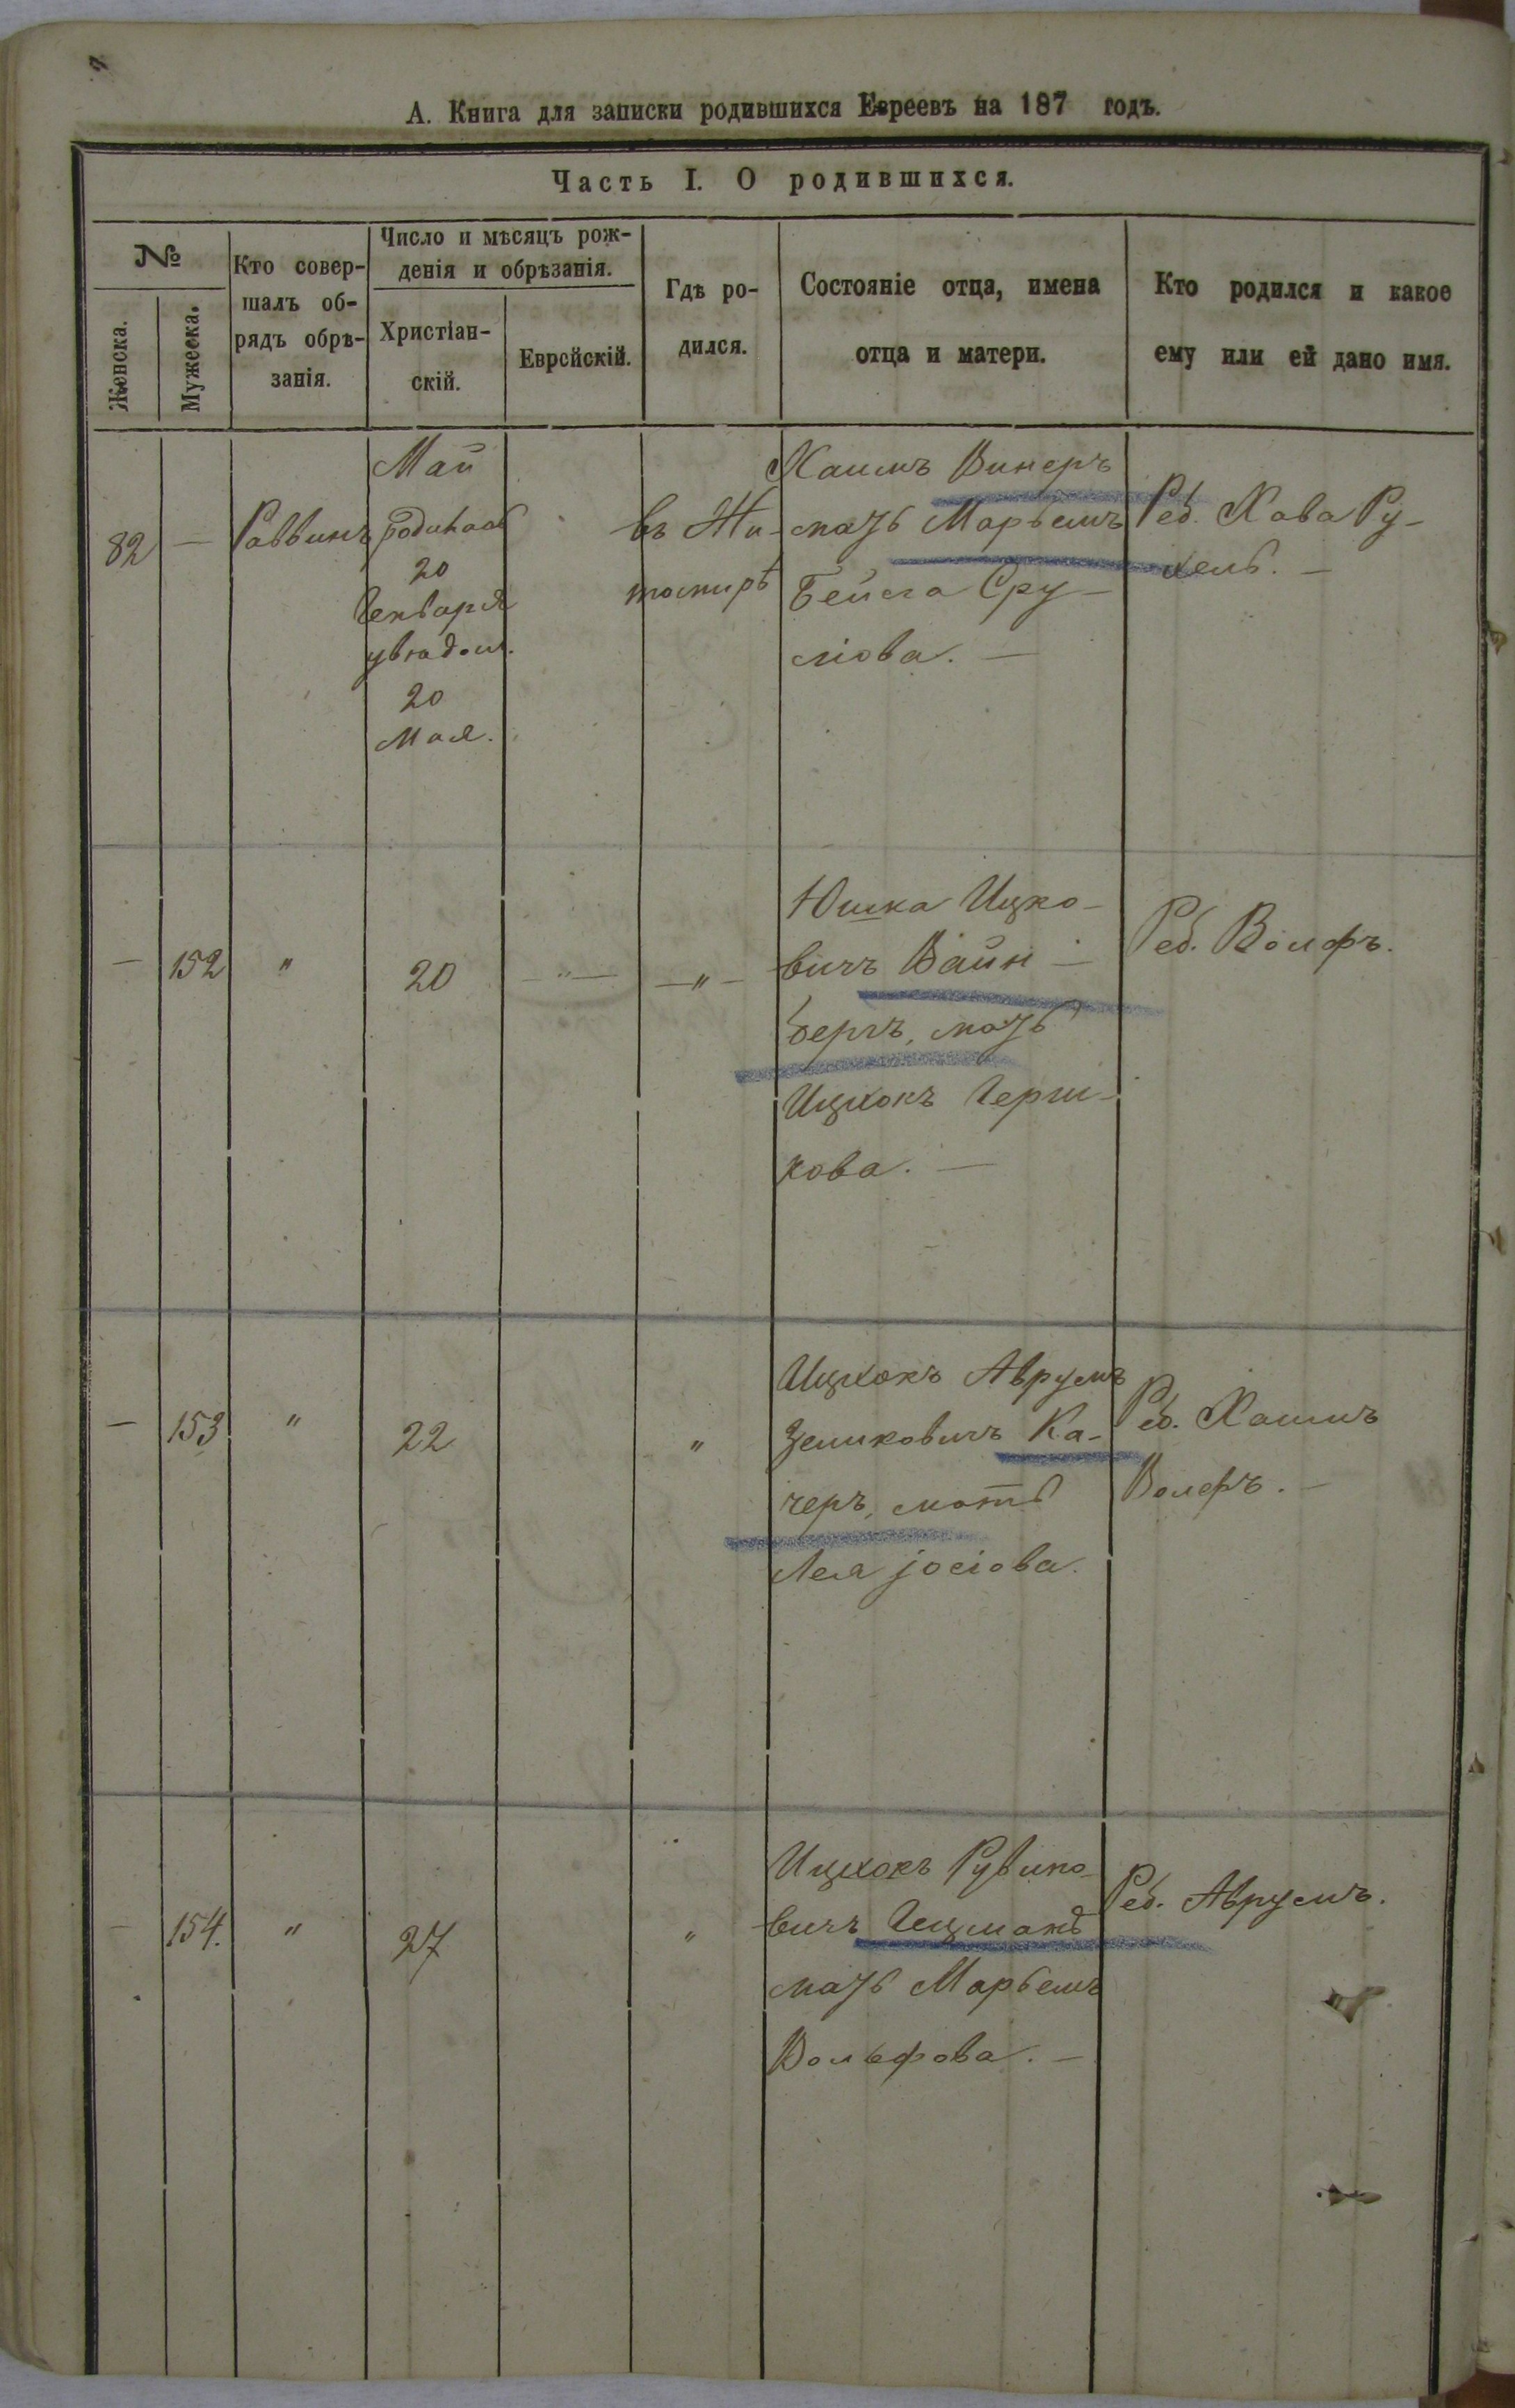 А. Книга для записки родившихся Евреевъ на 187 годъ.
Часть I. О родившихся.
№
Женска.
Мужеска.
Кто совер-
шалъ об-
рядъ обрѣ-
занія.
Число и мѣсяцъ рож-
денія и обрѣзанія.
Христіан-
скій.
Еврейскій.
Гдѣ ро-
дился.
Состояніе отца, имена
отца и матери.
Кто родился и какое
ему или ей дано имя.
82
—
Раввинъ
Май
родилась
20
Генваря
увѣдом.
20
Мая.
въ Жи-
томирѣ
Хаимъ Винеръ
мать Марьемъ
Бейла Сру-
лiова. —
Реб. Хава Ру-
хель. —
—
152
"
20
—"—
—"—
Юшка Ицко-
вичъ Вайн-
бергъ, мать
Ицхокъ Герш-
кова. —
Реб. Волфъ.
—
153
"
22
"
Ицхокъ Аврумъ
Зеликовичъ Ка-
черъ, мать
Лея јосiова.
Реб. Хаимъ
Волфъ. —
—
154.
"
27
"
Ицхокъ Рувино-
вичъ
мать Марьемъ
Вольфова. —
Реб. Аврумъ.